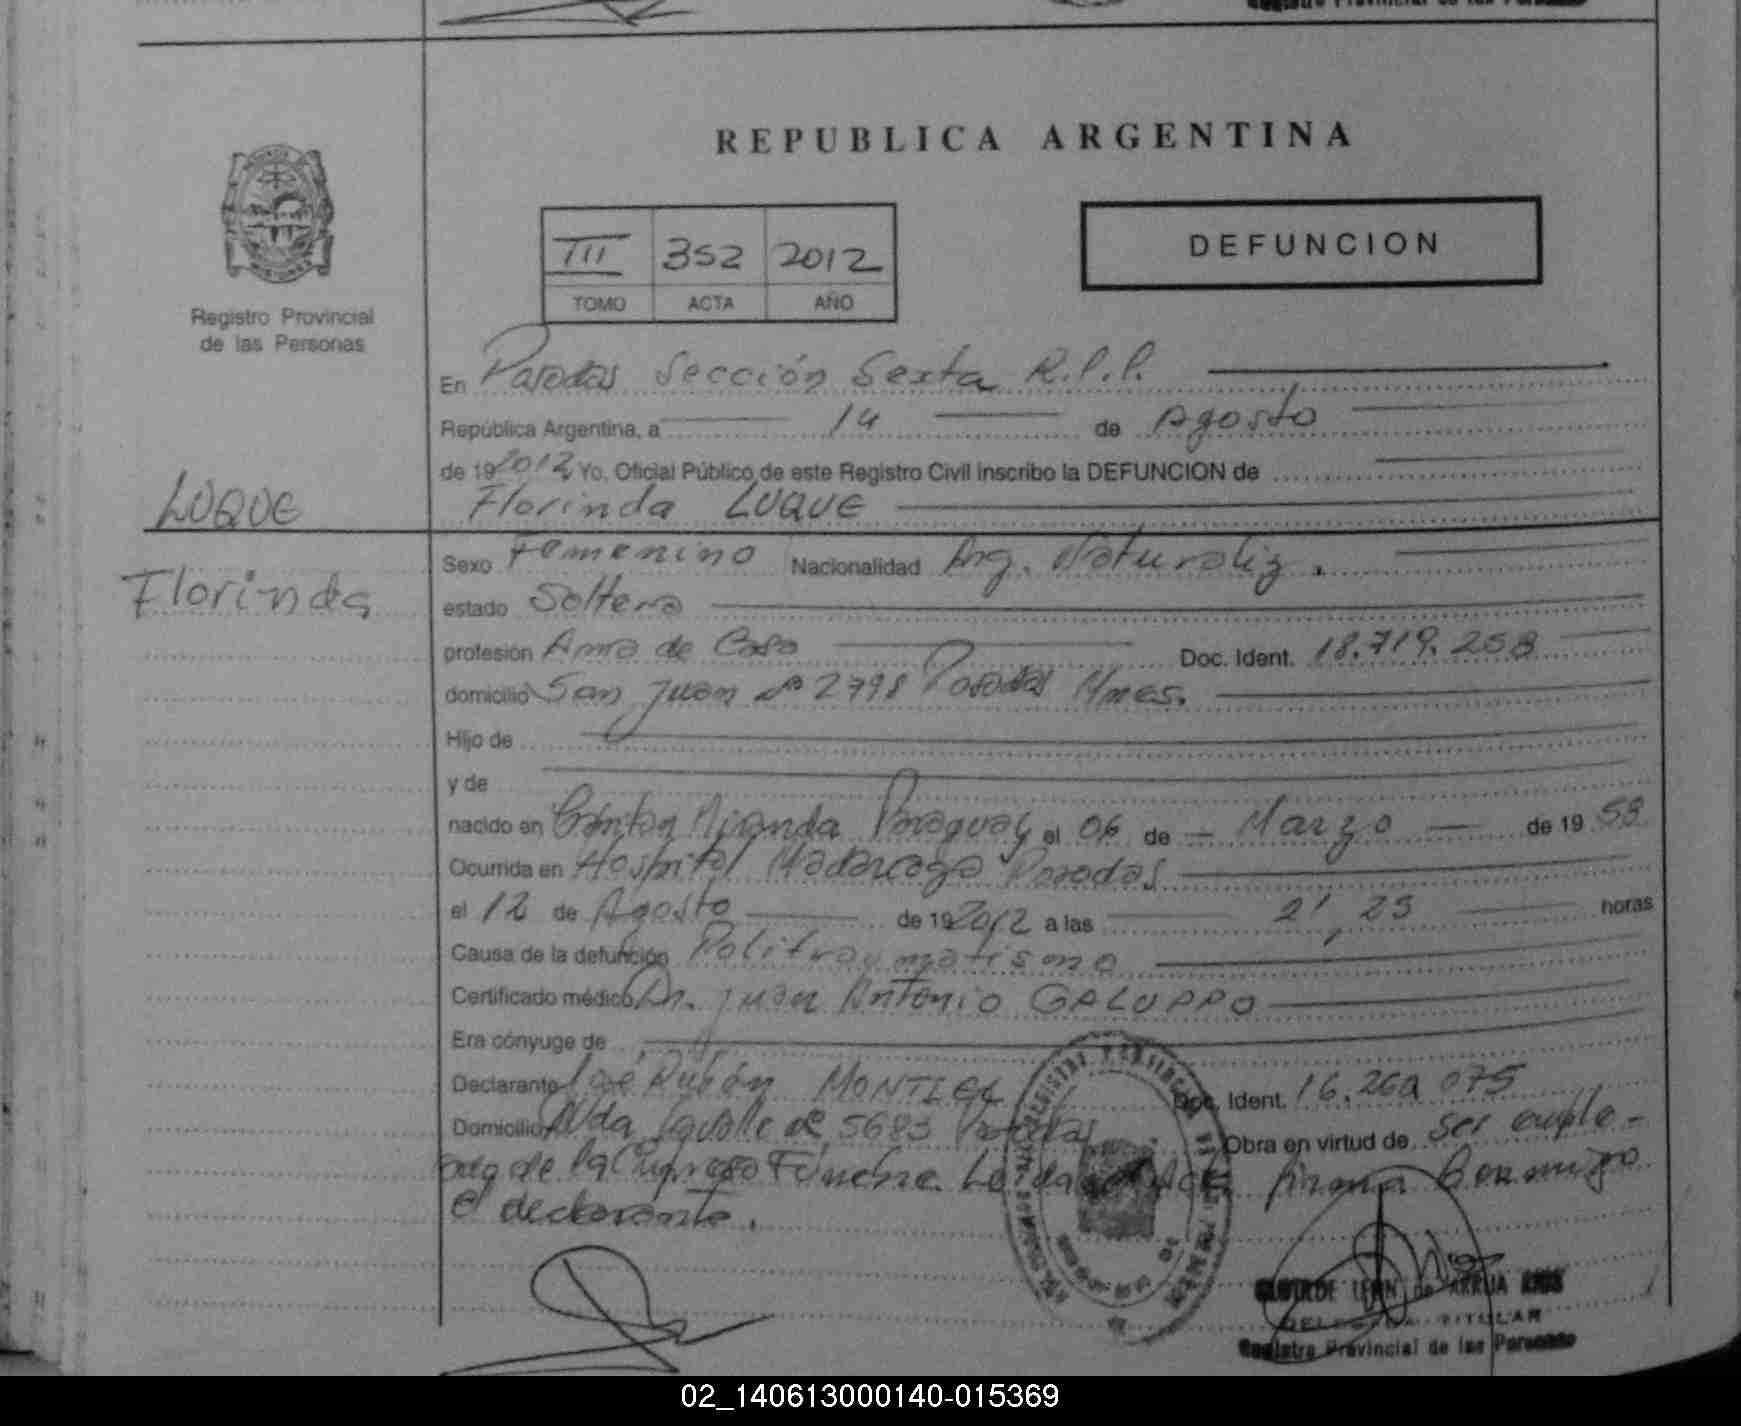 REPUBLICA ARGENTINA
III 352 2012
TOMO ACTA AÑO
DEFUNCION
Registro Provincial
de las Personas
En Posadas Sección Sexta R.P.P.
República Argentina, a 14 de Agosto
de 19 2012 Yo, Oficial Público de este Registro Civil inscribo la DEFUNCION de
LUQUE
Florinda LUQUE
Florinda
Sexo Femenino Nacionalidad Arg. Naturaliz.
estado Soltera
profesión Ama de Casa Doc. Ident. 18.719.258
domicilio San Juan Nº 2798 Posadas Mnes.
Hijo de
y de
nacido en Miranda Paraguay el 06 de Marzo de 19 58
Ocurrida en Hospital Madariaga Posadas
el 12 de Agosto de 19 2012 a las 21,23 horas
Causa de la defunción Politraumatismo
Certificado médico Dr. Juan Antonio GALUPPO
Era cónyuge de
Declarante José Rubén MONTIEL Doc. Ident. 16.
Domicilio Avda 5683 Posadas Obra en virtud de ser emple-
ado de la Empresa Fúnebre firma conmigo
el declarante.
DELEGADA TITULAR
Registro Provincial de las Personas
02_140613000140-015369